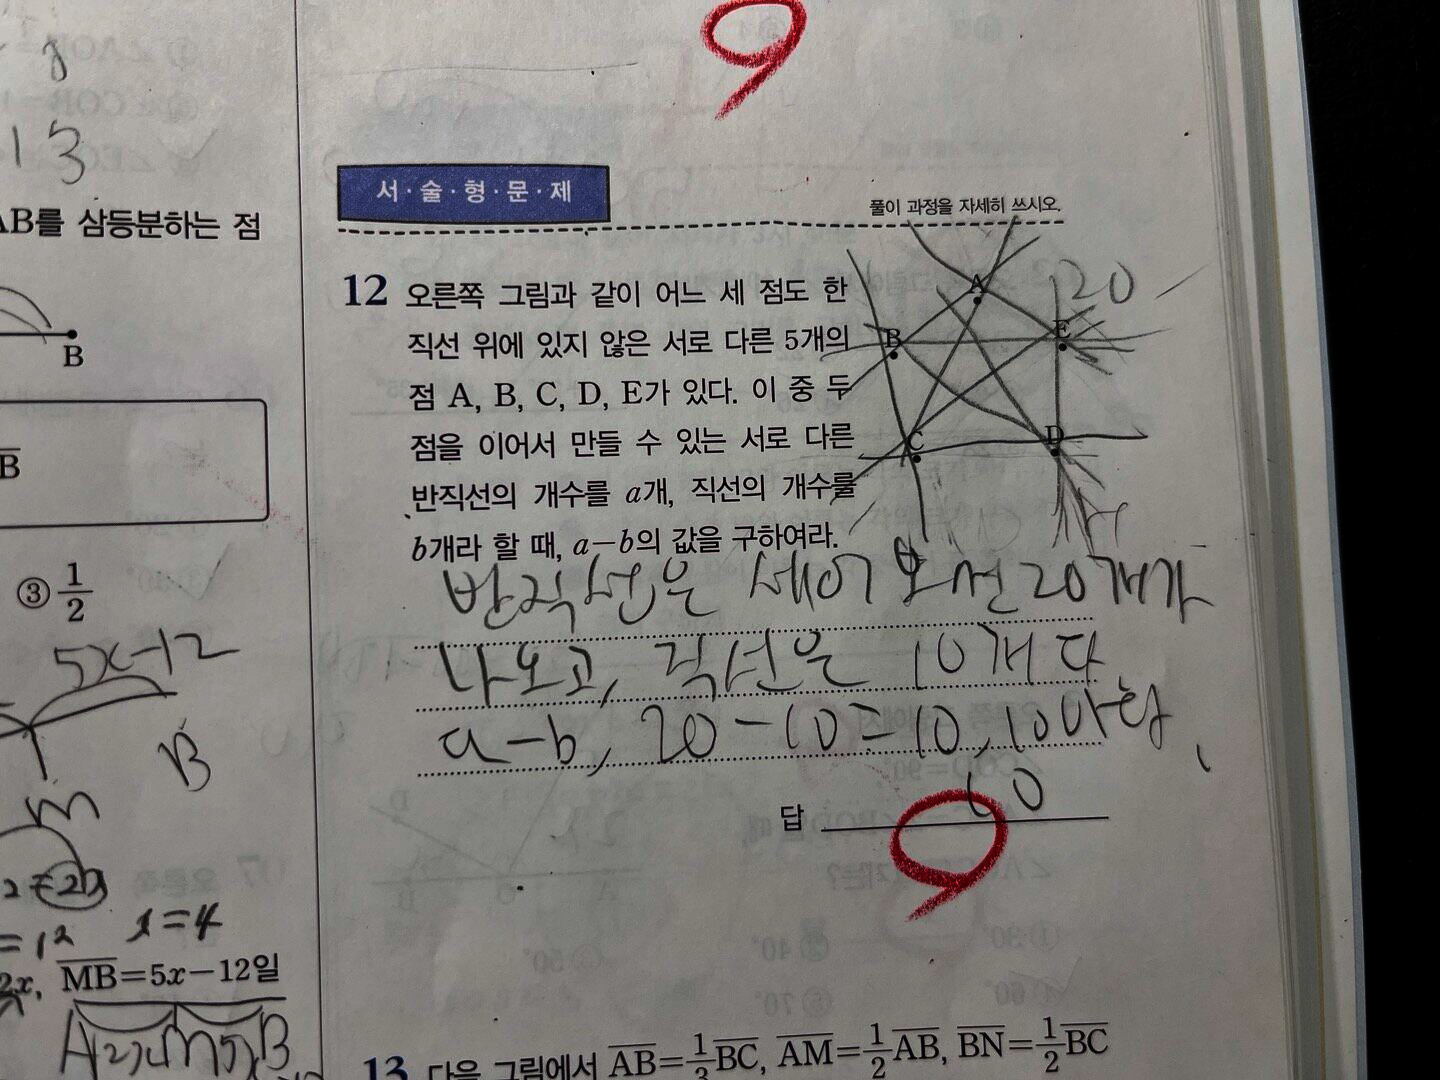 13
AB를 삼등분하는 점
B
B
③ 1/2
5x-12
B
M
x=4
2x, MB=5x-12일
A 2x M 5x B
서·술·형·문·제
풀이 과정을 자세히 쓰시오.
12 오른쪽 그림과 같이 어느 세 점도 한
직선 위에 있지 않은 서로 다른 5개의
점 A, B, C, D, E가 있다. 이 중 두
점을 이어서 만들 수 있는 서로 다른
반직선의 개수를 a개, 직선의 개수를
b개라 할 때, a-b의 값을 구하여라.
A
B
E
C
D
20
반직선은 세어 보면 20개가
나오고, 직선은 10개다
a-b, 20-10=10, 10
답 10
13 다음 그림에서 AB=1/3BC, AM=1/2AB, BN=1/2BC